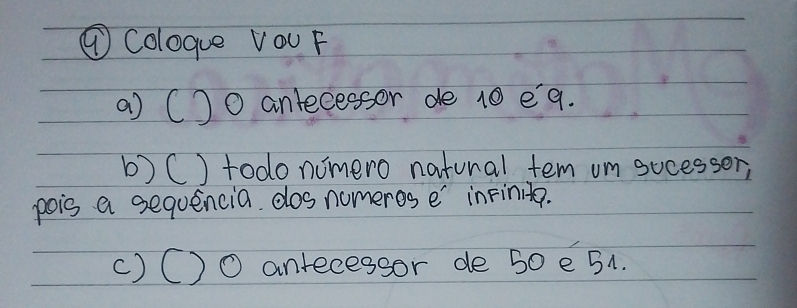 4 Coloque V ou F
a) ( ) O antecessor de 10 é 9.
b) ( ) todo número natural tem um sucessor,
pois a sequência dos numeros é infinita.
c) ( ) O antecessor de 50 é 51.